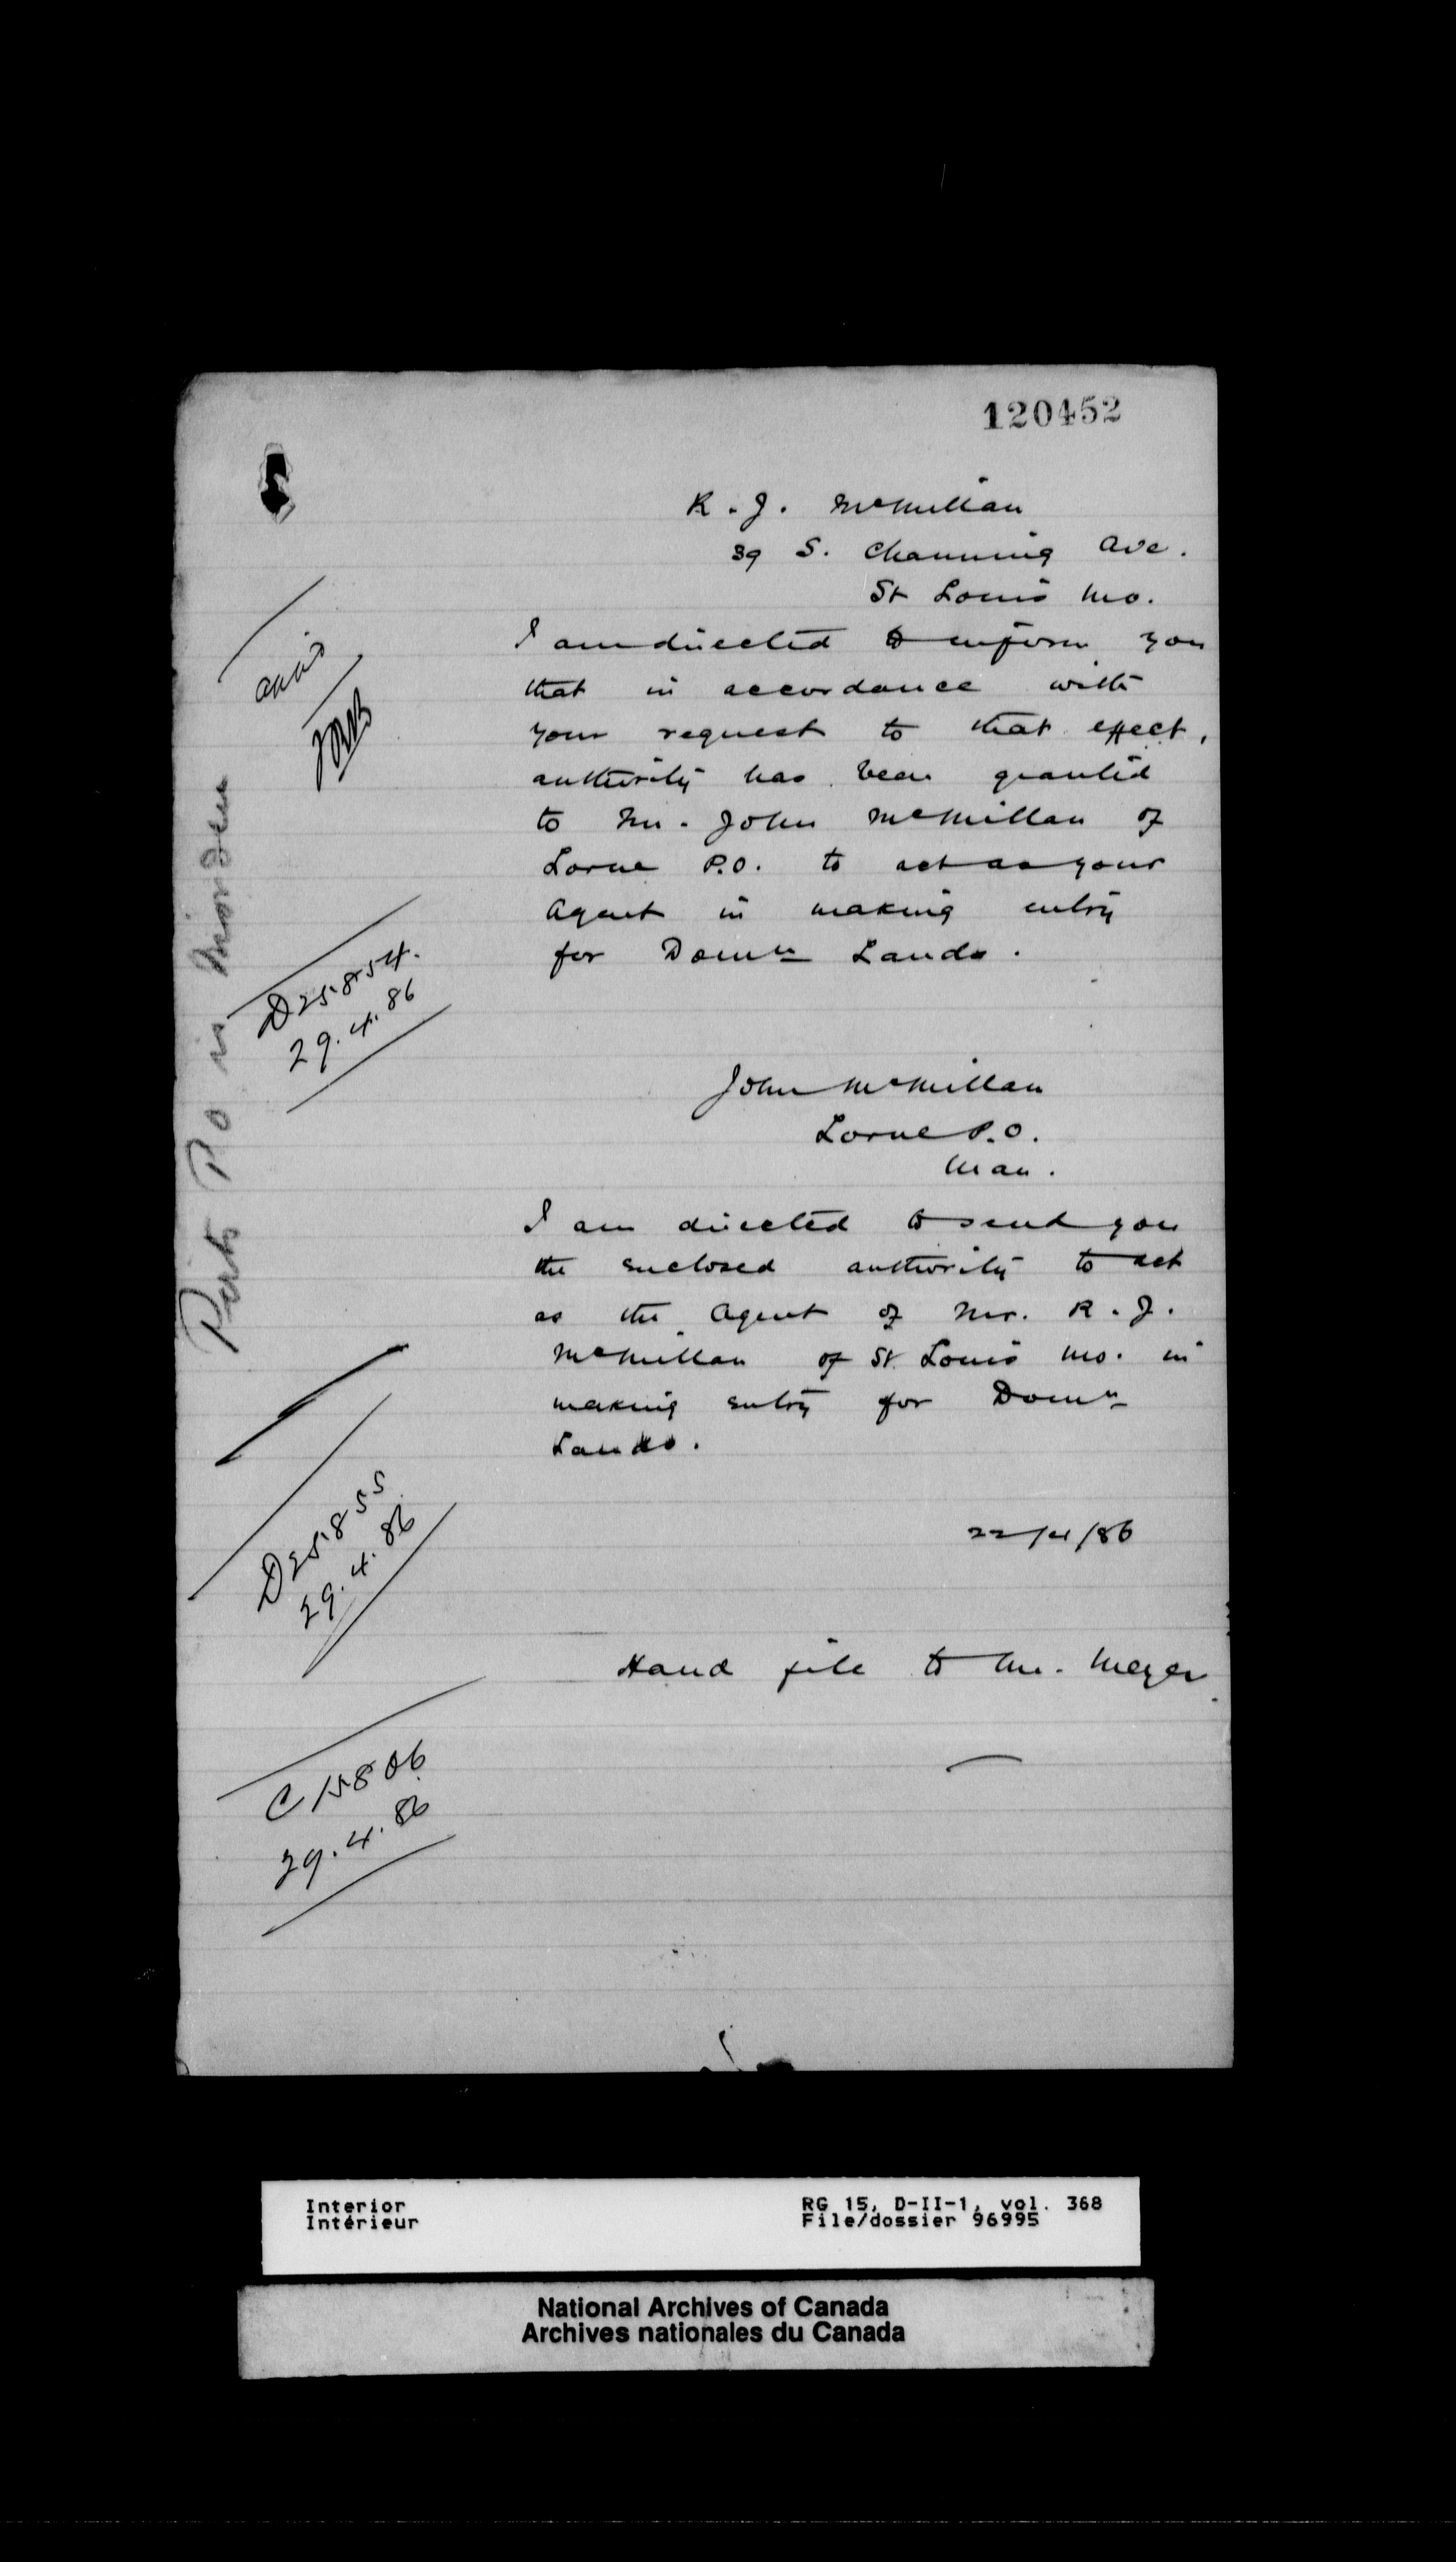 120452
R. J. McMillan
39 S. Channing Ave.
St Louis Mo.
I am directed to inform you
that in accordance with
your request to that effect,
authority has been granted
to Mr. John McMillan of
Lorne P.O. to act as your
Agent in making entry
for Domn Lands.
John McMillan
Lorne P.O.
Man.
I am directed to send you
the enclosed authority to act
as the Agent of Mr. R. J.
McMillan of St. Louis Mo. in
making entry for Domn
Lands.
22/4/86
Hand file to Mr. Meyer
D25854.
29.4.86
D25855
29.4.86
C15806
29.4.86
P.O. in
Interior
Intérieur
RG 15, D-II-1, vol. 368
File/dossier 96995
National Archives of Canada
Archives nationales du Canada